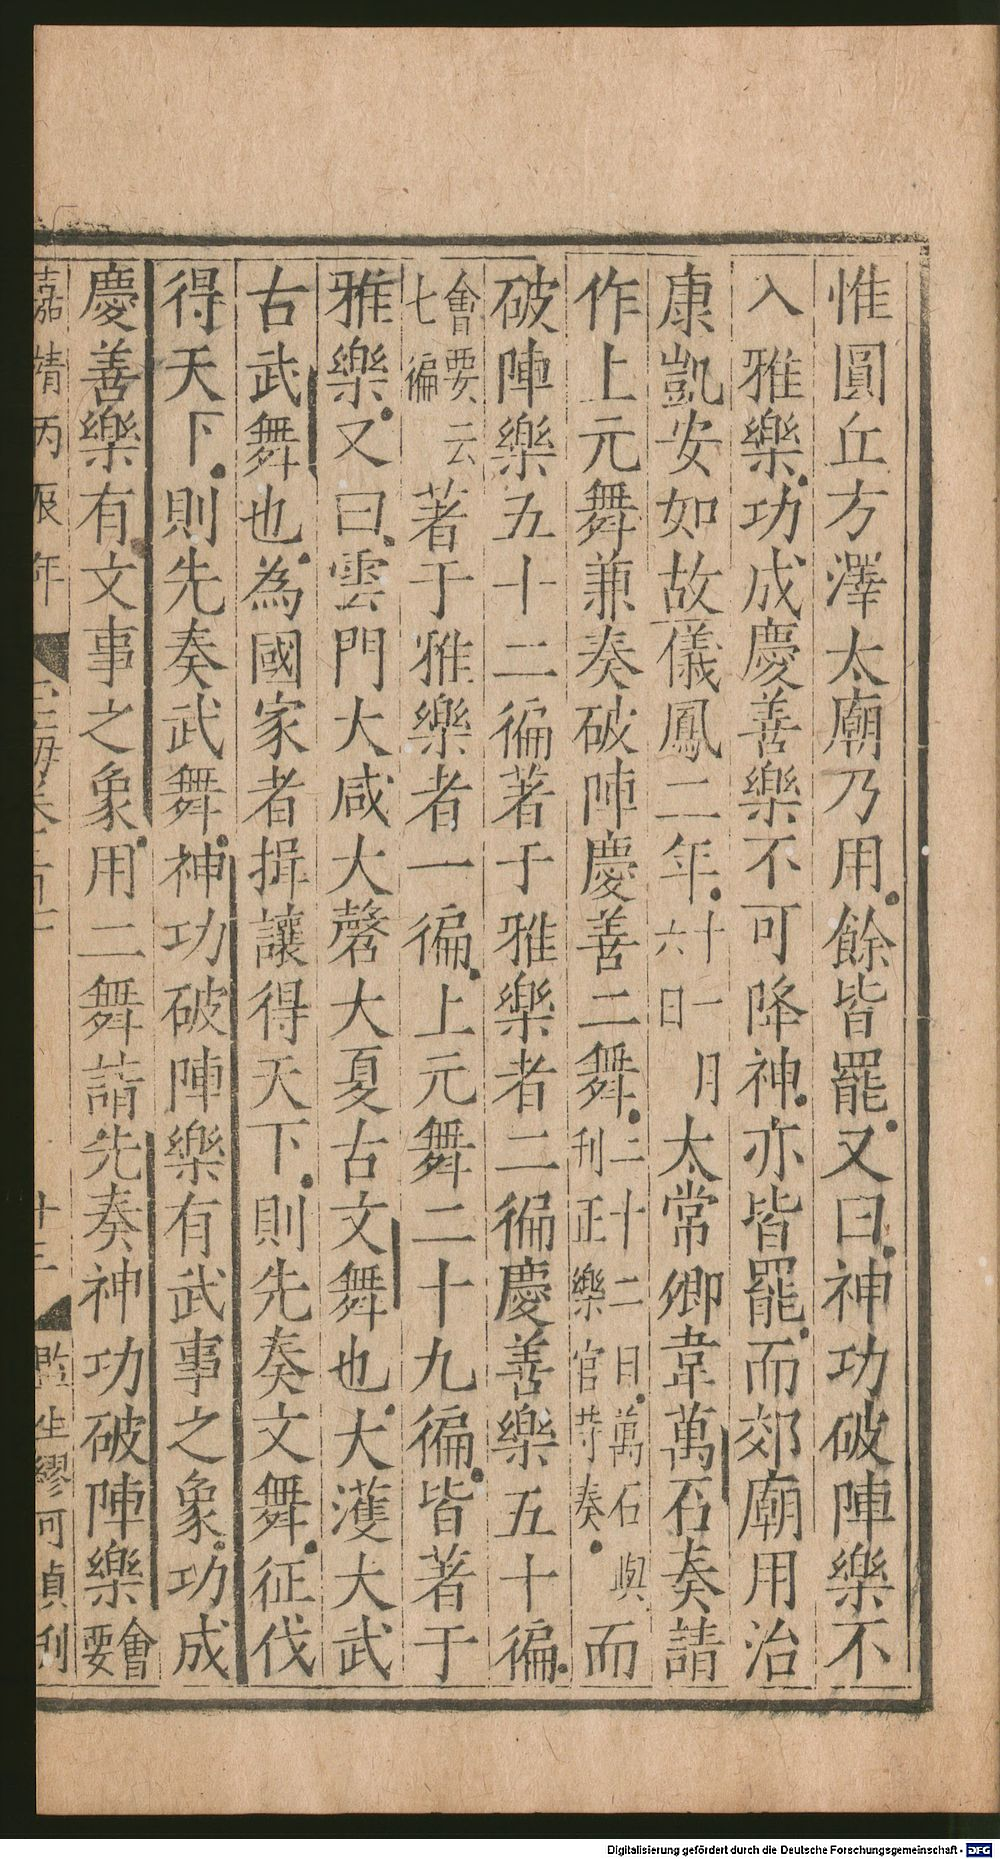 惟圓丘方澤太廟乃用餘皆罷又曰神功破陣樂不
入雅樂功成慶善樂不可降神亦皆罷而郊廟用治
康凱安如故儀鳳二年十一月六日太常卿韋萬石奏請
作上元舞兼奏破陣慶善二舞二十二日萬石與刊正樂官等奏而
破陣樂五十二徧著于雅樂者二徧慶善樂五十徧
會要云七徧著于雅樂者一徧上元舞二十九徧皆著于
雅樂又曰雲門大咸大磬大夏古文舞也大濩大武
古武舞也為國家者揖讓得天下則先奏文舞征伐
得天下則先奏武舞神功破陣樂有武事之象功成
慶善樂有文事之象用二舞請先奏神功破陣樂會要
嘉靖丙辰年
十三
監生繆可貞刊
Digitalisierung gefördert durch die Deutsche Forschungsgemeinschaft - DFG